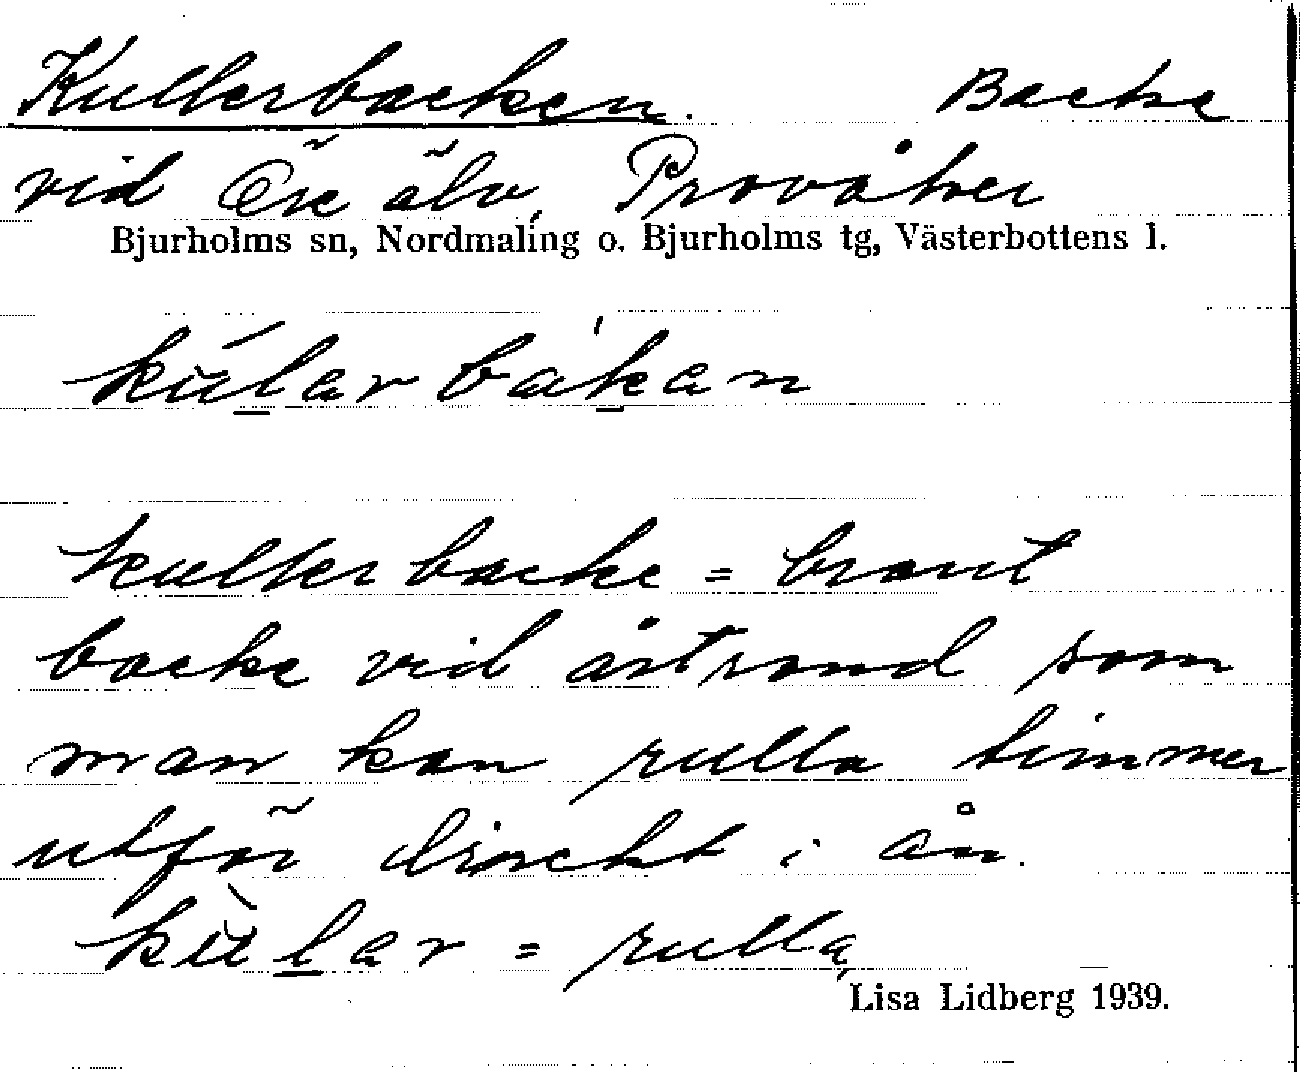 Kullerbacken. Backe
vid Öre älv, Provåker
Bjurholms sn, Nordmaling o. Bjurholms tg, Västerbottens l.
kullerbacke = brant
backe vid åstrand som
man kan rulla timmer
utför direkt i ån.
= rulla,
Lisa Lidberg 1939.